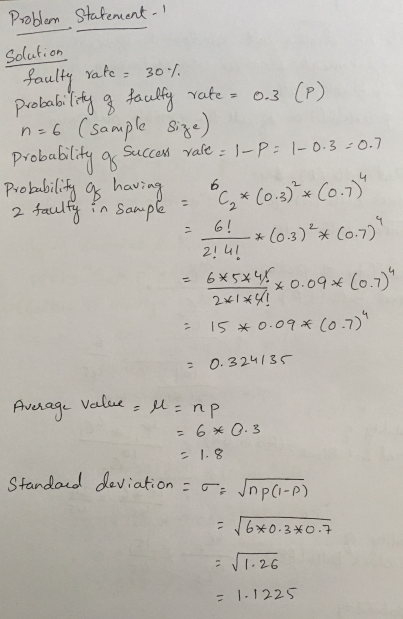 Problem Statement - 1
Solution
faulty rate = 30%.
Probability of faulty rate = 0.3 (P)
n = 6 (Sample Size)
Probability of Success rate = 1-P = 1-0.3 = 0.7
Probability of having 2 faulty in Sample = ⁶C₂ * (0.3)² * (0.7)⁴
= 6! / 2! 4! * (0.3)² * (0.7)⁴
= 6*5*4! / 2*1*4! * 0.09 * (0.7)⁴
= 15 * 0.09 * (0.7)⁴
= 0.324135
Average Value = μ = np
= 6 * 0.3
= 1.8
Standard deviation = σ = √np(1-P)
= √6*0.3*0.7
= √1.26
= 1.1225